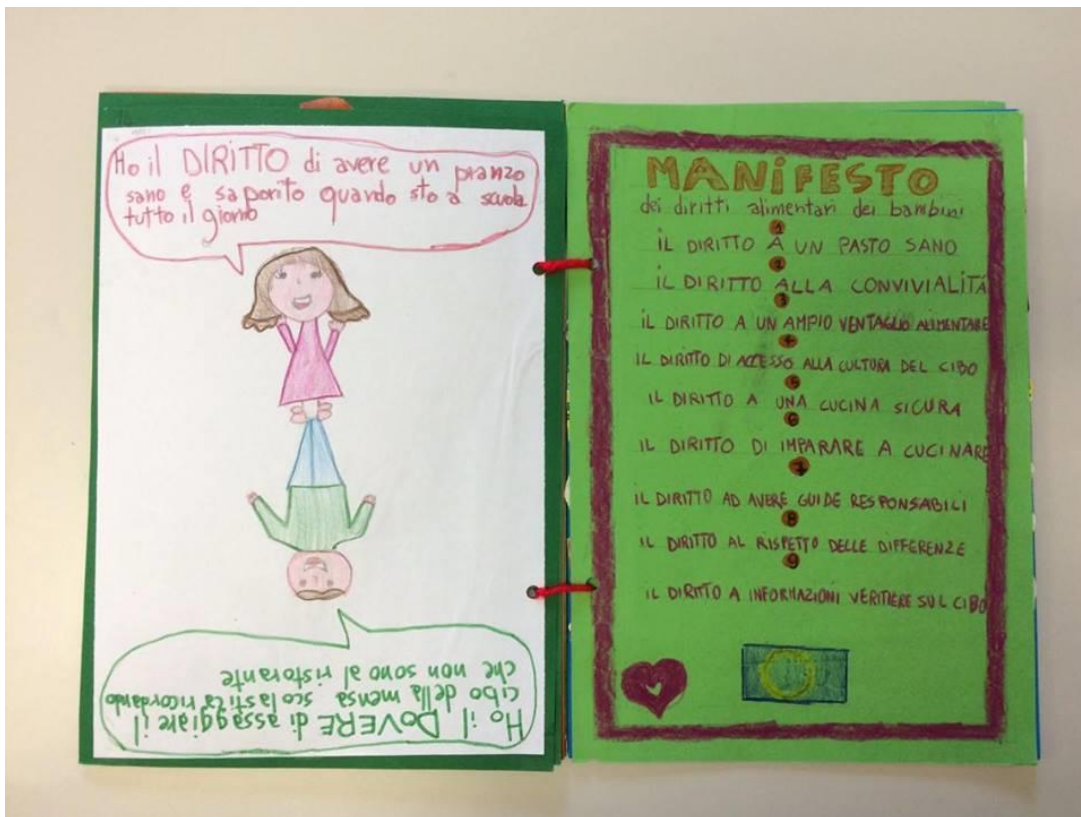 Ho il DIRITTO di avere un pranzo
sano e saporito quando sto a scuola
tutto il giorno
Ho il DOVERE di assaggiare il
cibo della mensa scolastica ricordando
che non sono al ristorante
MANiFESTO
dei diritti alimentari dei bambini
1
IL DIRITTO A UN PASTO SANO
2
IL DIRITTO ALLA CONVIVIALITÁ
3
IL DIRITTO A UN AMPIO VENTAGLIO ALIMENTARE
4
IL DIRITTO DI ACCESSO ALLA CULTURA DEL CIBO
5
IL DIRITTO A UNA CUCINA SICURA
6
IL DIRITTO DI IMPARARE A CUCINARE
7
IL DIRITTO AD AVERE GUIDE RESPONSABILI
8
IL DIRITTO AL RISPETTO DELLE DIFFERENZE
9
IL DIRITTO A INFORMAZIONI VERITIERE SUL CIBO